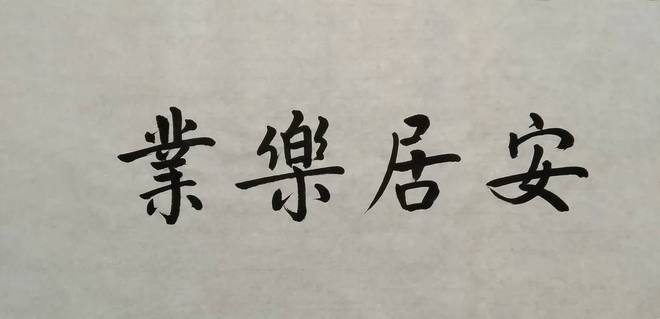 安居樂業